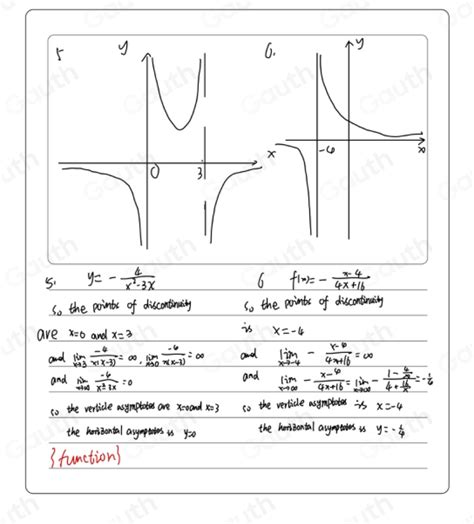 5
y
0
3
x
6.
y
-6
x
5. y = - 4/(x²-3x)
So the points of discontinuity
are x=0 and x=3
and lim x→3 -4/(x(x-3)) = ∞, lim x→0 -4/(x(x-3)) = ∞
and lim x→∞ -4/(x²-3x) = 0
so the verticle asymptotes are x=0 and x=3
the horizontal asymptotes is y=0
{function}
6 f(x) = - (x-4)/(4x+16)
So the points of discontinuity
is x=-4
and lim x→-4 - (x-4)/(4x+16) = ∞
and lim x→∞ - (x-4)/(4x+16) = lim x→∞ - (1-4/x)/(4+16/x) = -1/4
so the verticle asymptotes is x=-4
the horizontal asymptotes is y=-1/4
Gauth